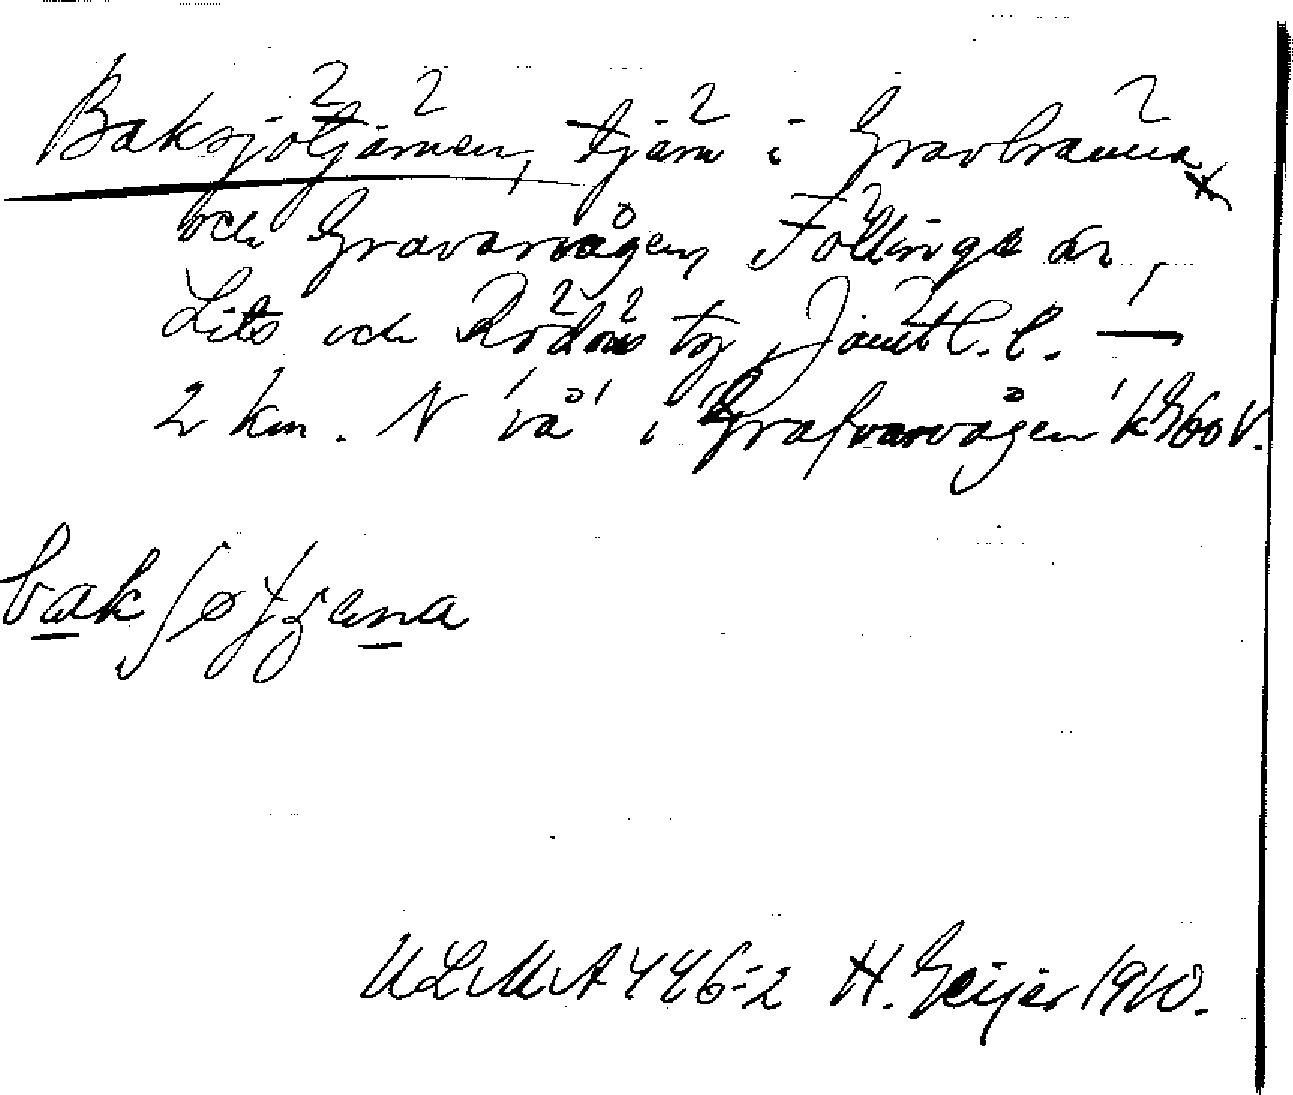 Baksjötjärnen, tjärn i Gravbränna
och Gravarvågen, Föllinge sn,
Lits och Rödöns tg, Jämtl. l. —
2 km. N 'vå' i 'Grafvarvågen' k 60 V.
ULMA 446:2 H. Geijer 1910.